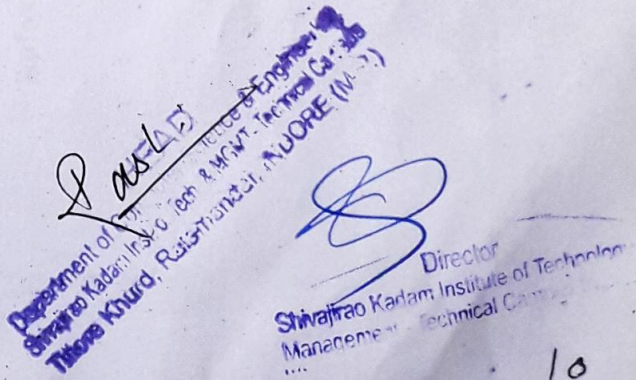 HEAD
Department of Science & Engineering
Shivajirao Kadam Inst. o Tech & MGMT- Technical Campus
Tillore Khurd, Ralamandal, INDORE (M.P.)
Director
Shivajirao Kadam Institute of Technology
Management - Technical Campus
10